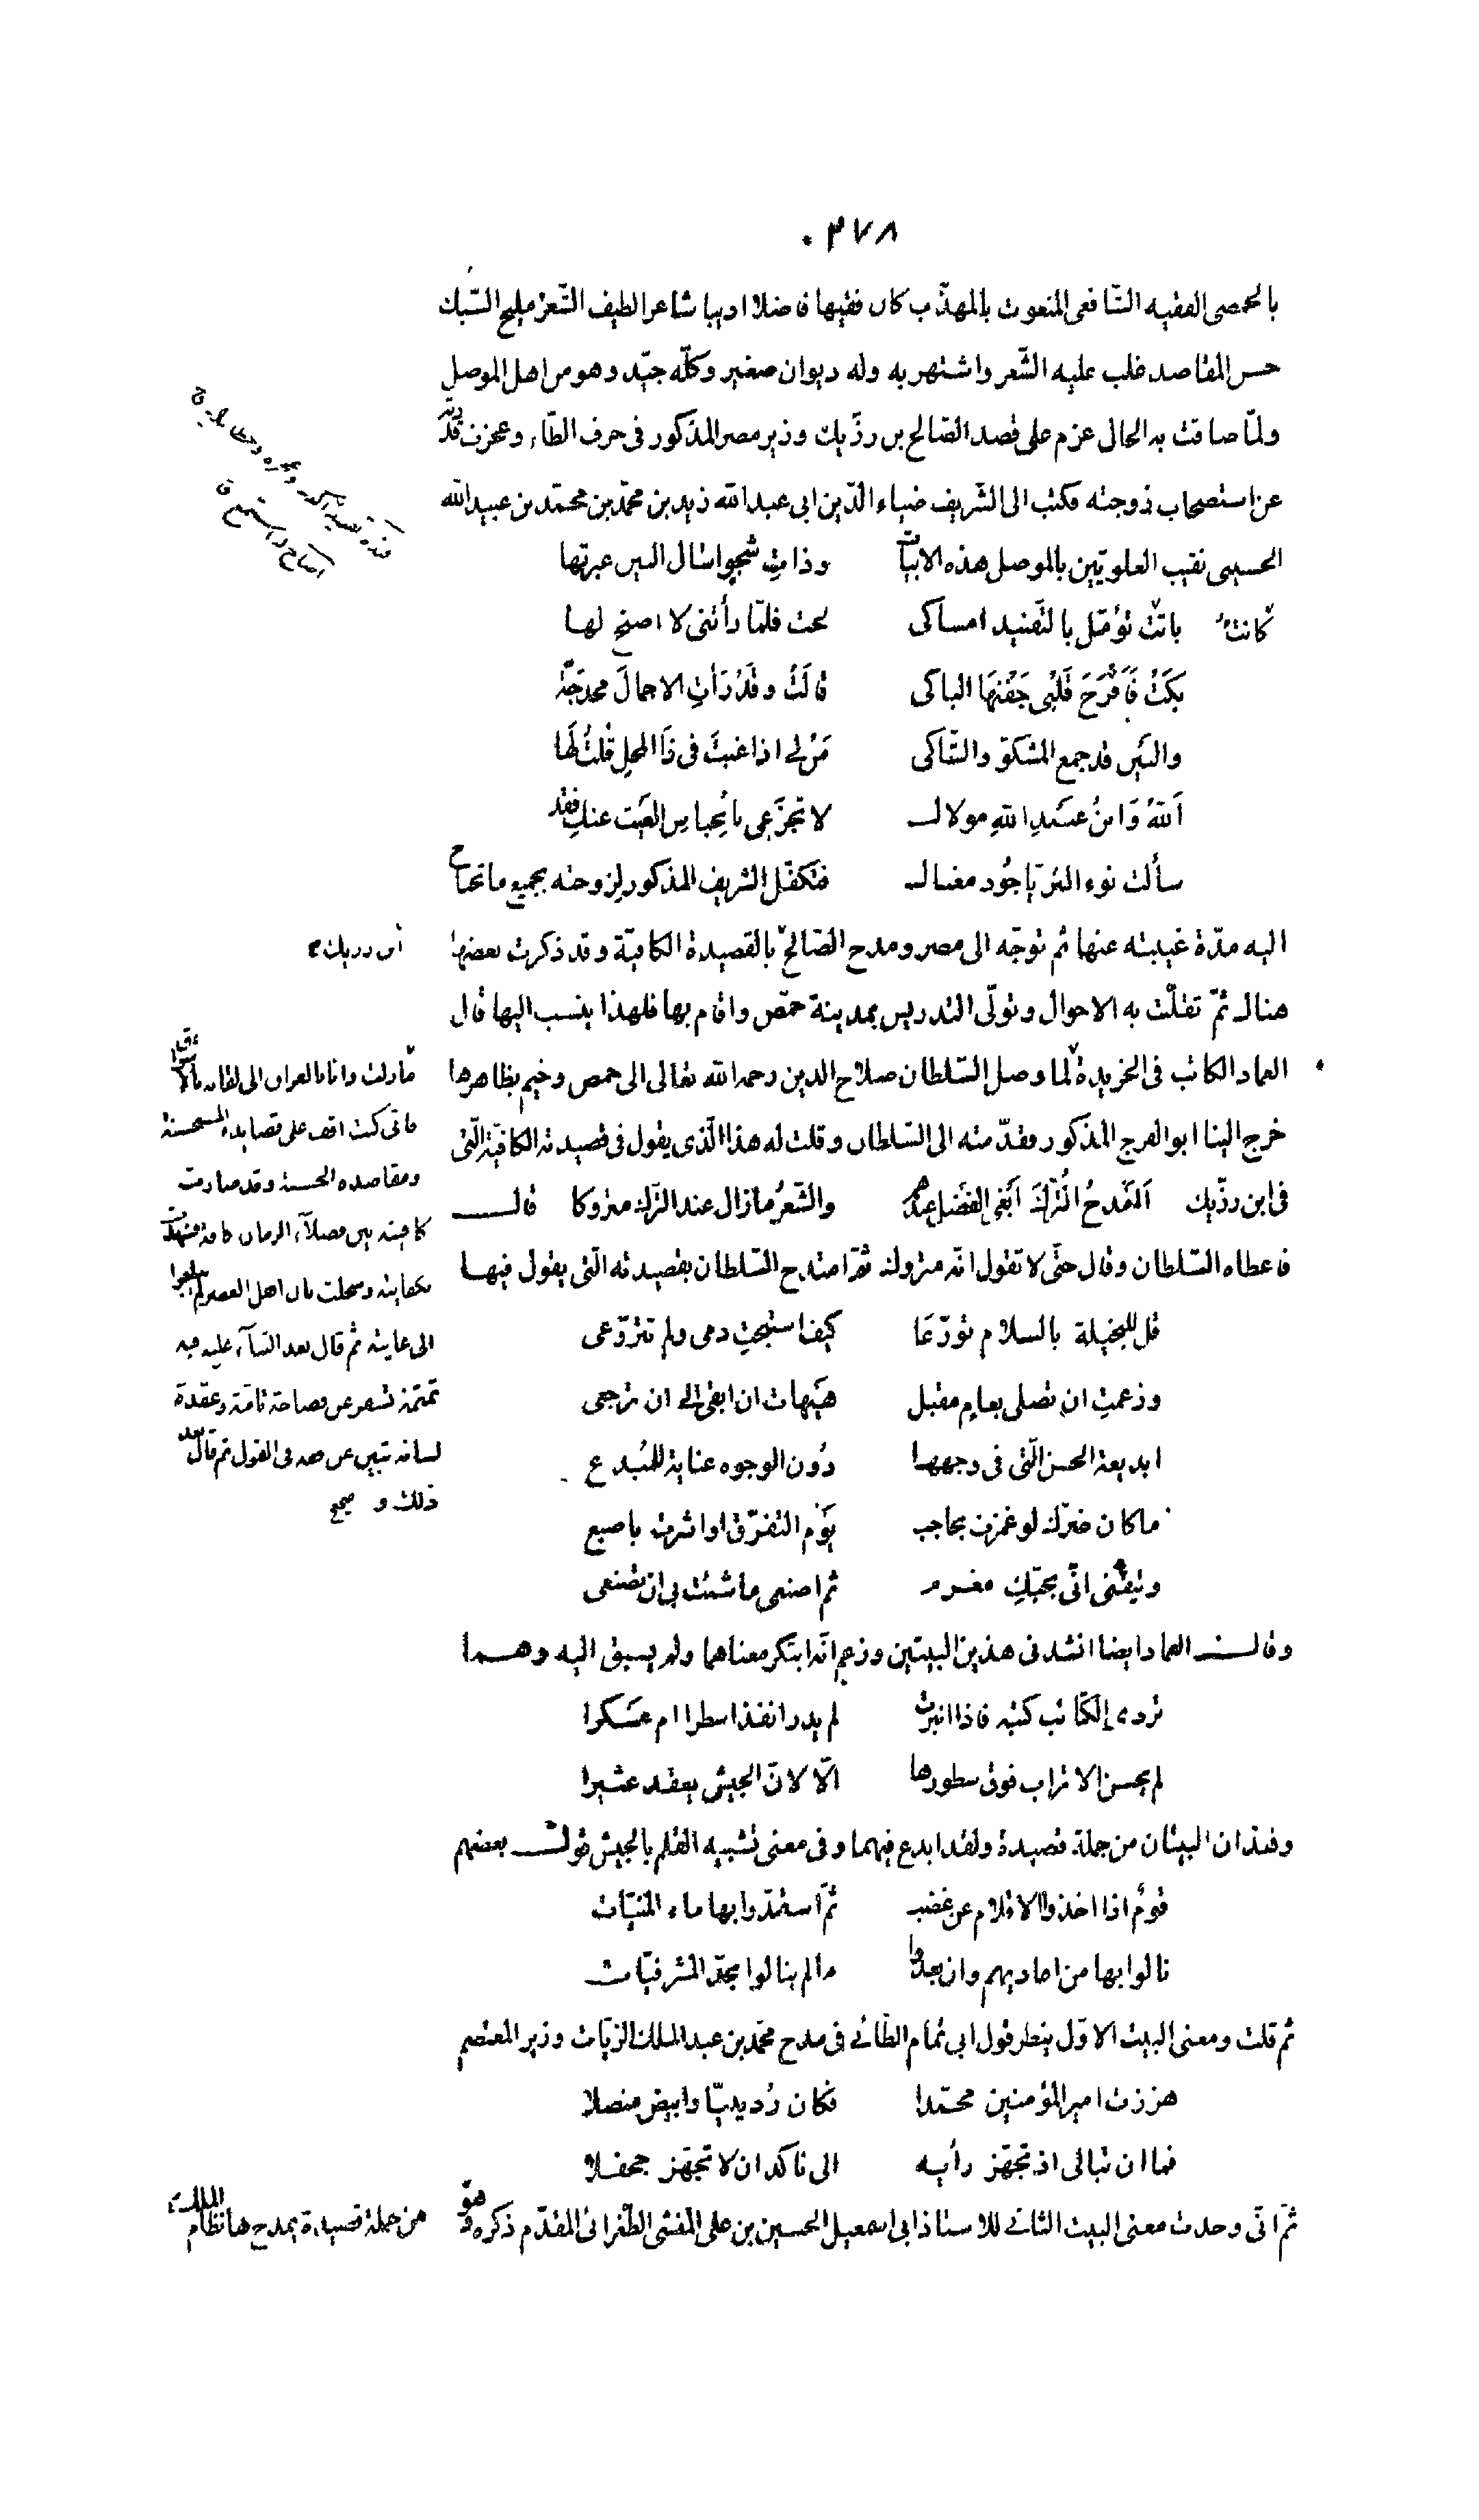 ٣٧٨
بالحمصى الفقيه الشافعى المنعوت بالمهذّب كان فقيها فاضلا اديبا شاعرا لطيف الشّعر مليح السّبك
حسن المقاصد غلب عليه الشّعر واشتهر به وله ديوان صغير وكلّه جيّد وهو من اهل الموصل
ولمّا ضاقت به الحال عزم على قصد الصّالح بن رزّيك وزير مصر المذكور فى حرف الطّاء وعجزت قدرته
عن استصحاب زوجته فكتب الى الشّريف ضياء الدّين ابى عبد الله زيد بن محمّد بن محمّد بن عبيد الله
الحسينى نقيب العلويّين بالموصل هذه الابيات وذات شجو اسال البين عبرتها
كانت باتت تؤمّل بالتّفنيد امساكى لحت فلمّا رأتنى لا اصيخ لها
بكت فاقرح قلبى جفنها الباكى قالت وقد رأت الاجمال محدجة
والبين قد جمع المشكوّ والشّاكى من لى اذا غبت فى ذا المحل قلت لها
الله وابن عبيد الله مولاك لا تجزعى بانحباس الغيث عنك فقد
سألت نوء الثريّا جود مغناك فتكفّل الشريف المذكور لزوجته بجميع ما تحتاج
اليه مدّة غيبته عنها ثم توجّه الى مصر ومدح الصّالح بالقصيدة الكافيّة وقد ذكرت بعضها
ابن رزيك
هناك ثمّ تقلّبت به الاحوال وتولّى التدريس بمدينة حمص واقام بها فلهذا ينسب اليها قال
العماد الكاتب فى الخريدة لما وصل السّلطان صلاح الدين رحمه الله تعالى الى حمص وخيم بظاهرها
خرج الينا ابو الفرج المذكور فقدّمته الى السّلطان وقلت له هذا الّذى يقول فى قصيدته الكافيّة الّتى
فى ابن رزّيك أأمدح الترك ابغى الفضل عندهم والشّعر ما زال عند الترك متروكا قال
فاعطاه السّلطان وقال حتّى لا تقول انّه متروك ثمّ امتدح السّلطان بقصيدته الّتى يقول فيها
قل للبخيلة بالسلام تورّعا كيف استبحت دمى ولم تتورّعى
وزعمت ان تصلى بعام مقبل هيهات ان ابقى الى ان ترجعى
ابديعة الحسن الّتى فى وجهها دون الوجوه عناية للمبدع
ما كان ضرّك لو غمزت بحاجب يوم التفرّق او اشرت باصبع
وتيقّنى انّى بحبّك مغرم ثم اصنعى ما شئت بى ان تصنعى
وقال العماد ايضا انشدنى هذين البيتين وزعم انّه ابتكر معناهما ولم يسبق اليه وهما
تردى الكتائب كتبه فاذا انبرت لم يدر انفذ اسطرا ام عسكرا
لم يحسن الاتراب فوق سطورها الّا لانّ الجيش يعقد عثيرا
وهذان البيتان من جملة قصيدة ولقد ابدع فيهما وفى معنى تشبيه القلم بالجيش قول بعضهم
قوم اذا اخذوا الاقلام عن غضب ثمّ استمدّوا بها ماء المنيّات
نالوا بها من اعاديهم وان بعدوا ما لم ينالوا بحدّ المشرفيّات
ثم قلت ومعنى البيت الاوّل ينظر قول ابى تمام الطّائى فى مدح محمّد بن عبد الملك الزيّات وزير المعتصم
هززت امير المؤمنين محمّدا فكان ردينيّا وابيض منصلا
فما ان تبالى اذ تجهّز رأيه الى ناكث ان لا تجهّز جحفلا
ثمّ انّى وجدت معنى البيت الثانى للاستاذ ابى اسمعيل الحسين بن على المنشى الطّغرائى المقدّم ذكره وهو من جملة قصيدة يمدح بها نظام الملك
ما زلت وانا بالعراق الى لقائه بالاشواق
فانّى كنت اقف على قصايده المستحسنة
ومقاصده الحسنة وقد صارت
كافيته بين فضلاء الزمان كافة فشهدت
بكفايته وسجلت بان اهل العصر لم يبلغوا
الى غايته ثم قال بعد الثناء عليه فيه
تمتمة تسفر عن فصاحة تامّة وعقدة
لسانه تبين عن فقه فى القول ثم قال بعد
ذلك و صحّ